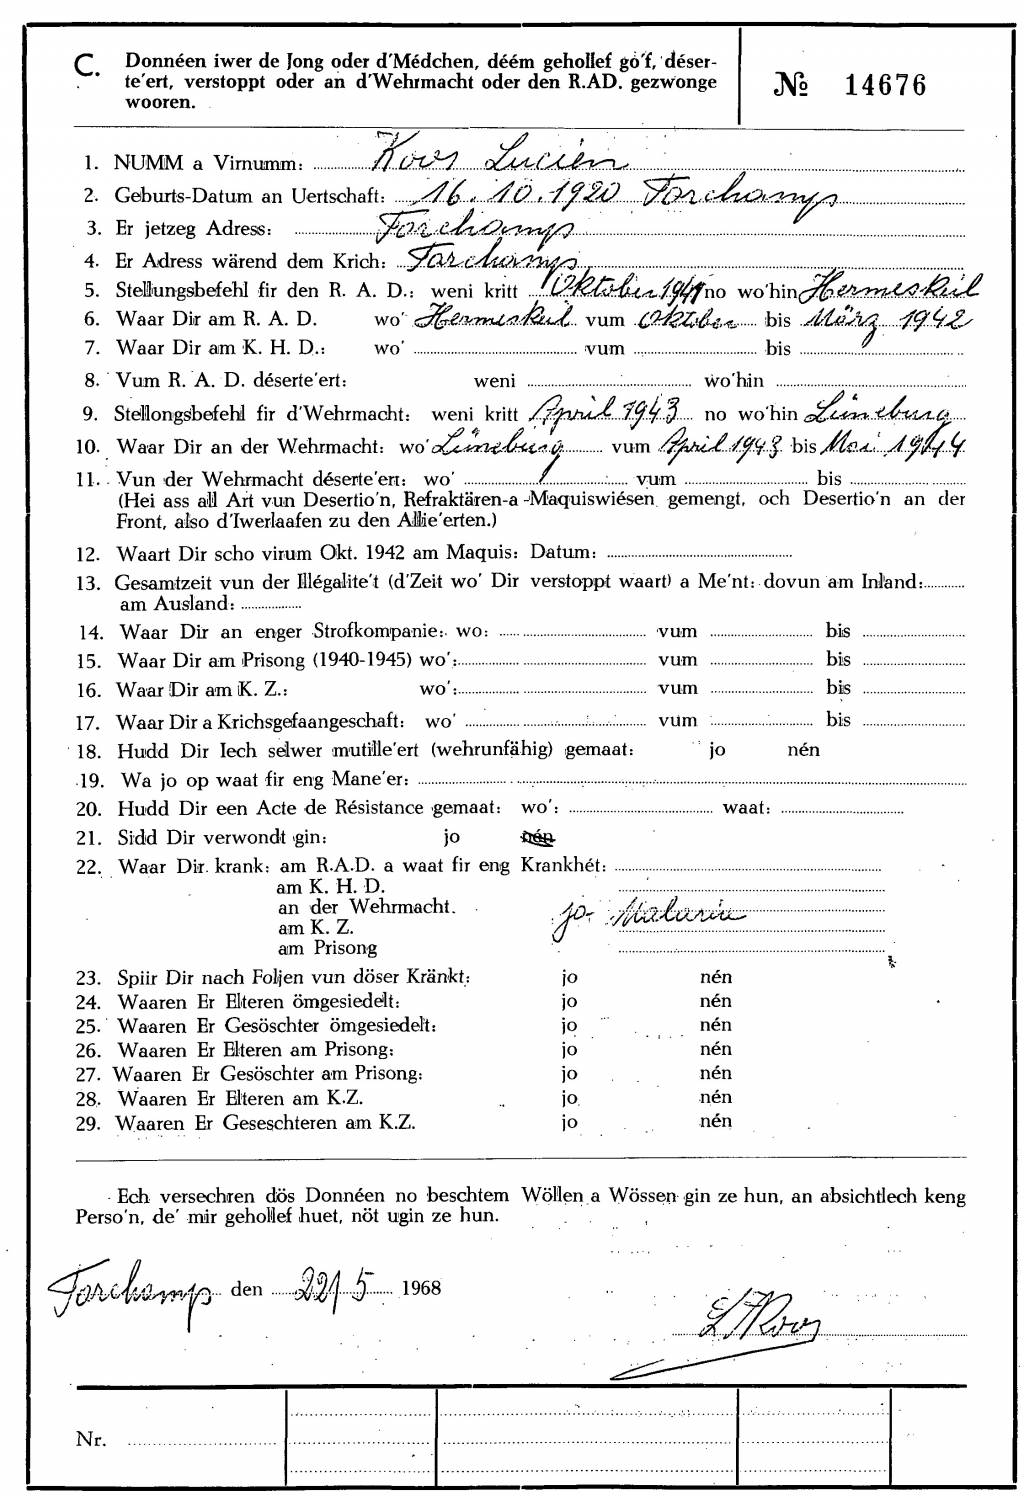 C. Donnéen iwer de Jong oder d'Médchen, déém gehollef go'f, déser-
te'ert, verstoppt oder an d'Wehrmacht oder den R.AD. gezwonge
wooren.
№ 14676
1. NUMM a Virnumm: Koos Lucien
2. Geburts-Datum an Uertschaft: 16.10.1920 Forchamps
3. Er jetzeg Adress: Forchamps
4. Er Adress wärend dem Krich: Forchamps
5. Stellungsbefehl fir den R. A. D.: weni kritt Oktober 1941 no wo'hin Hermeskeil
6. Waar Dir am R. A. D. wo' Hermeskeil vum Oktober bis März 1942
7. Waar Dir am K. H. D.: wo' vum bis
8. Vum R. A. D. déserte'ert: weni wo'hin
9. Stellongsbefehl fir d'Wehrmacht: weni kritt April 1943 no wo'hin Lüneburg
10. Waar Dir an der Wehrmacht: wo' Lüneburg vum April 1943 bis Mai 1944
11. Vun der Wehrmacht déserte'ert: wo' vum bis
(Hei ass all Art vun Desertio'n, Refraktären-a-Maquiswiésen gemengt, och Desertio'n an der
Front, also d'Iwerlaafen zu den Allie'erten.)
12. Waart Dir scho virum Okt. 1942 am Maquis: Datum:
13. Gesamtzeit vun der Illégalite't (d'Zeit wo' Dir verstoppt waart) a Me'nt: dovun am Inland:
am Ausland:
14. Waar Dir an enger Strofkompanie: wo: vum bis
15. Waar Dir am Prisong (1940-1945) wo': vum bis
16. Waar Dir am K. Z.: wo': vum bis
17. Waar Dir a Krichsgefaangeschaft: wo' vum bis
18. Hudd Dir Iech selwer mutille'ert (wehrunfähig) gemaat: jo nén
19. Wa jo op waat fir eng Mane'er:
20. Hudd Dir een Acte de Résistance gemaat: wo': waat:
21. Sidd Dir verwondt gin: jo nén
22. Waar Dir krank: am R.A.D. a waat fir eng Krankhét:
am K. H. D.
an der Wehrmacht. jo- Malaria
am K. Z.
am Prisong
23. Spiir Dir nach Foljen vun döser Kränkt: jo nén
24. Waaren Er Elteren ömgesiedelt: jo nén
25. Waaren Er Gesöschter ömgesiedelt: jo nén
26. Waaren Er Elteren am Prisong: jo nén
27. Waaren Er Gesöschter am Prisong: jo nén
28. Waaren Er Elteren am K.Z. jo nén
29. Waaren Er Geseschteren am K.Z. jo nén
Ech versechren dös Donnéen no beschtem Wöllen a Wössen gin ze hun, an absichtlech keng
Perso'n, de' mir gehollef huet, nöt ugin ze hun.
Forchamps den 22/5 1968
L Koos
Nr.